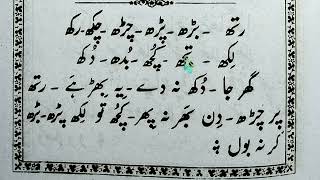 رتھ ۔ بڑھ ۔ پڑھ ۔ چڑھ ۔ چکھ ۔ رکھ
لکھ ۔ تھ ۔ کچھ ۔ بدھ ۔ دکھ
گھر جا ۔ دکھ نہ دے ۔ یہ بھڑ ہے ۔ رتھ
پر چڑھ ۔ دن بھر نہ پھر ۔ کچھ تو لکھ پڑھ ۔ بڑھ
کر نہ بول